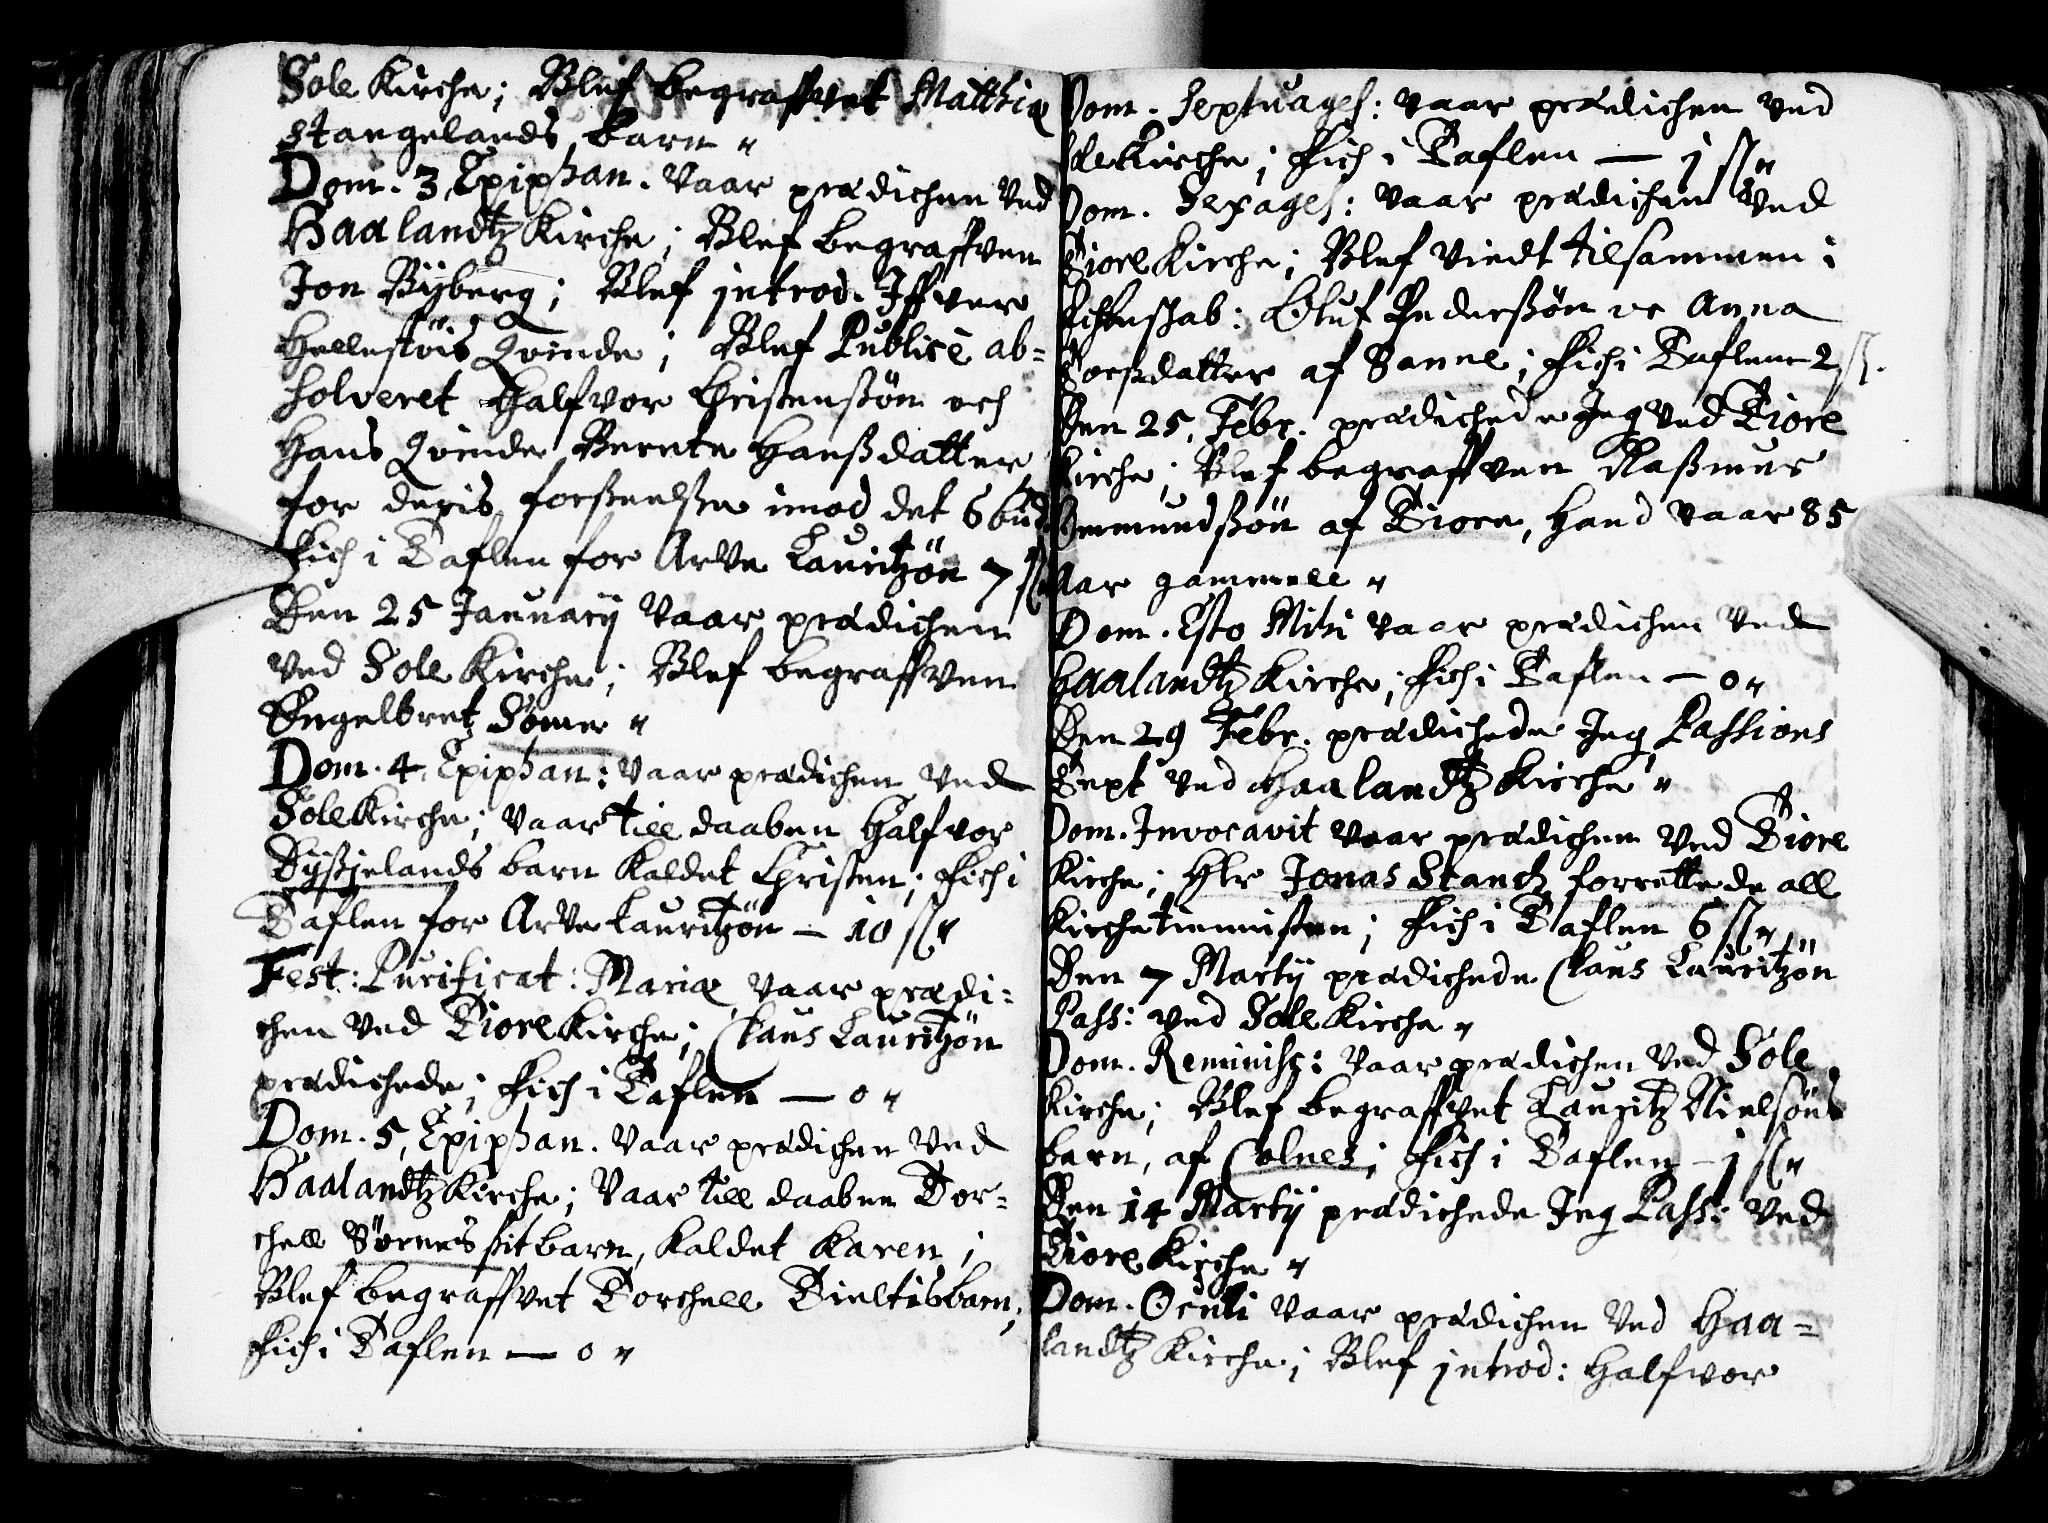 Sole Kirche; Blef begraffvet Matthiæ
Stangelands barn "
Dom. 3 Epiphan. Vaar prædichen Ved
Haalandtz Kirche; Blef begraffven
Jon Ryberg; Blef introd. Iffver
Hellestøis Qvinde; Blef Publicè ab-
solveret Halfvor Christenssøn och
Hans Qvinde Berete Hanssdatter
for deris forseelsse imod det 6 bud.
Fich i Taflen for Arve Lauritzøn 7 ß "
Den 25 January Vaar prædichen
Ved Sole Kirche; Blef begraffven
Engelbret Sømе "
Dom. 4 Epiphan: Vaar prædichen Ved
Sole Kirche; Vaar till daaben Halfvor
Tysjelands barn kaldet Christen; Fich i
Taflen for Arve Lauritzøn — 10 ß "
Fest: Purificat: Mariæ Vaar prædi-
chen Ved Tiore Kirche; Claus Lauritzøn
prædichede; Fich i Taflen — 0 "
Dom. 5 Epiphan. Vaar prædichen Ved
Haalandtz Kirche; Vaar till daaben Tor-
chell Sørnes sit barn, kaldet Karen;
Blef begraffvet Torchell Tieltis barn;
Fich i Taflen — 0 "
Dom. Septuages: Vaar prædichen Ved
Sole Kirche; Fich i Taflen — 1 ß "
Dom. Sexages: Vaar prædichen Ved
Tiore Kirche; Blef Viedt tilsammen i
Echteschab: Oluf Pederssøn oc Anna
datter af Sanne; Fich i Taflen 2 ß.
Den 25 Febr. prædichede Jeg Ved Tiore
Kirche; Blef begraffven Rassmus
Ommundssøn af Tiore, Hand Vaar 85
Aar gammell "
Dom. Esto Mihi Vaar prædichen Ved
Haalandtz Kirche; Fich i Taflen — 0 "
Den 29 Febr. prædichede Jeg Passions
Text Ved Haalandtz Kirche "
Dom. Invocavit Vaar prædichen Ved Tiore
Kirche; Hr Jonas Stangh forrettede all
Kirchetiennisten; Fich i Taflen 6 ß "
Den 7 Martij prædichede Claus Lauritzøn
Pass: Ved Sole Kirche "
Dom. Reminisc: Vaar prædichen Ved Sole
Kirche; Blef begraffvet Lauritz Nielsøns
barn, af Colnes; Fich i Taflen — 1 ß "
Den 14 Martij prædichede Jeg Pass: Ved
Tiore Kirche "
Dom. Oculi Vaar prædichen Ved Haa-
landtz Kirche; Blef introd: Halfvor